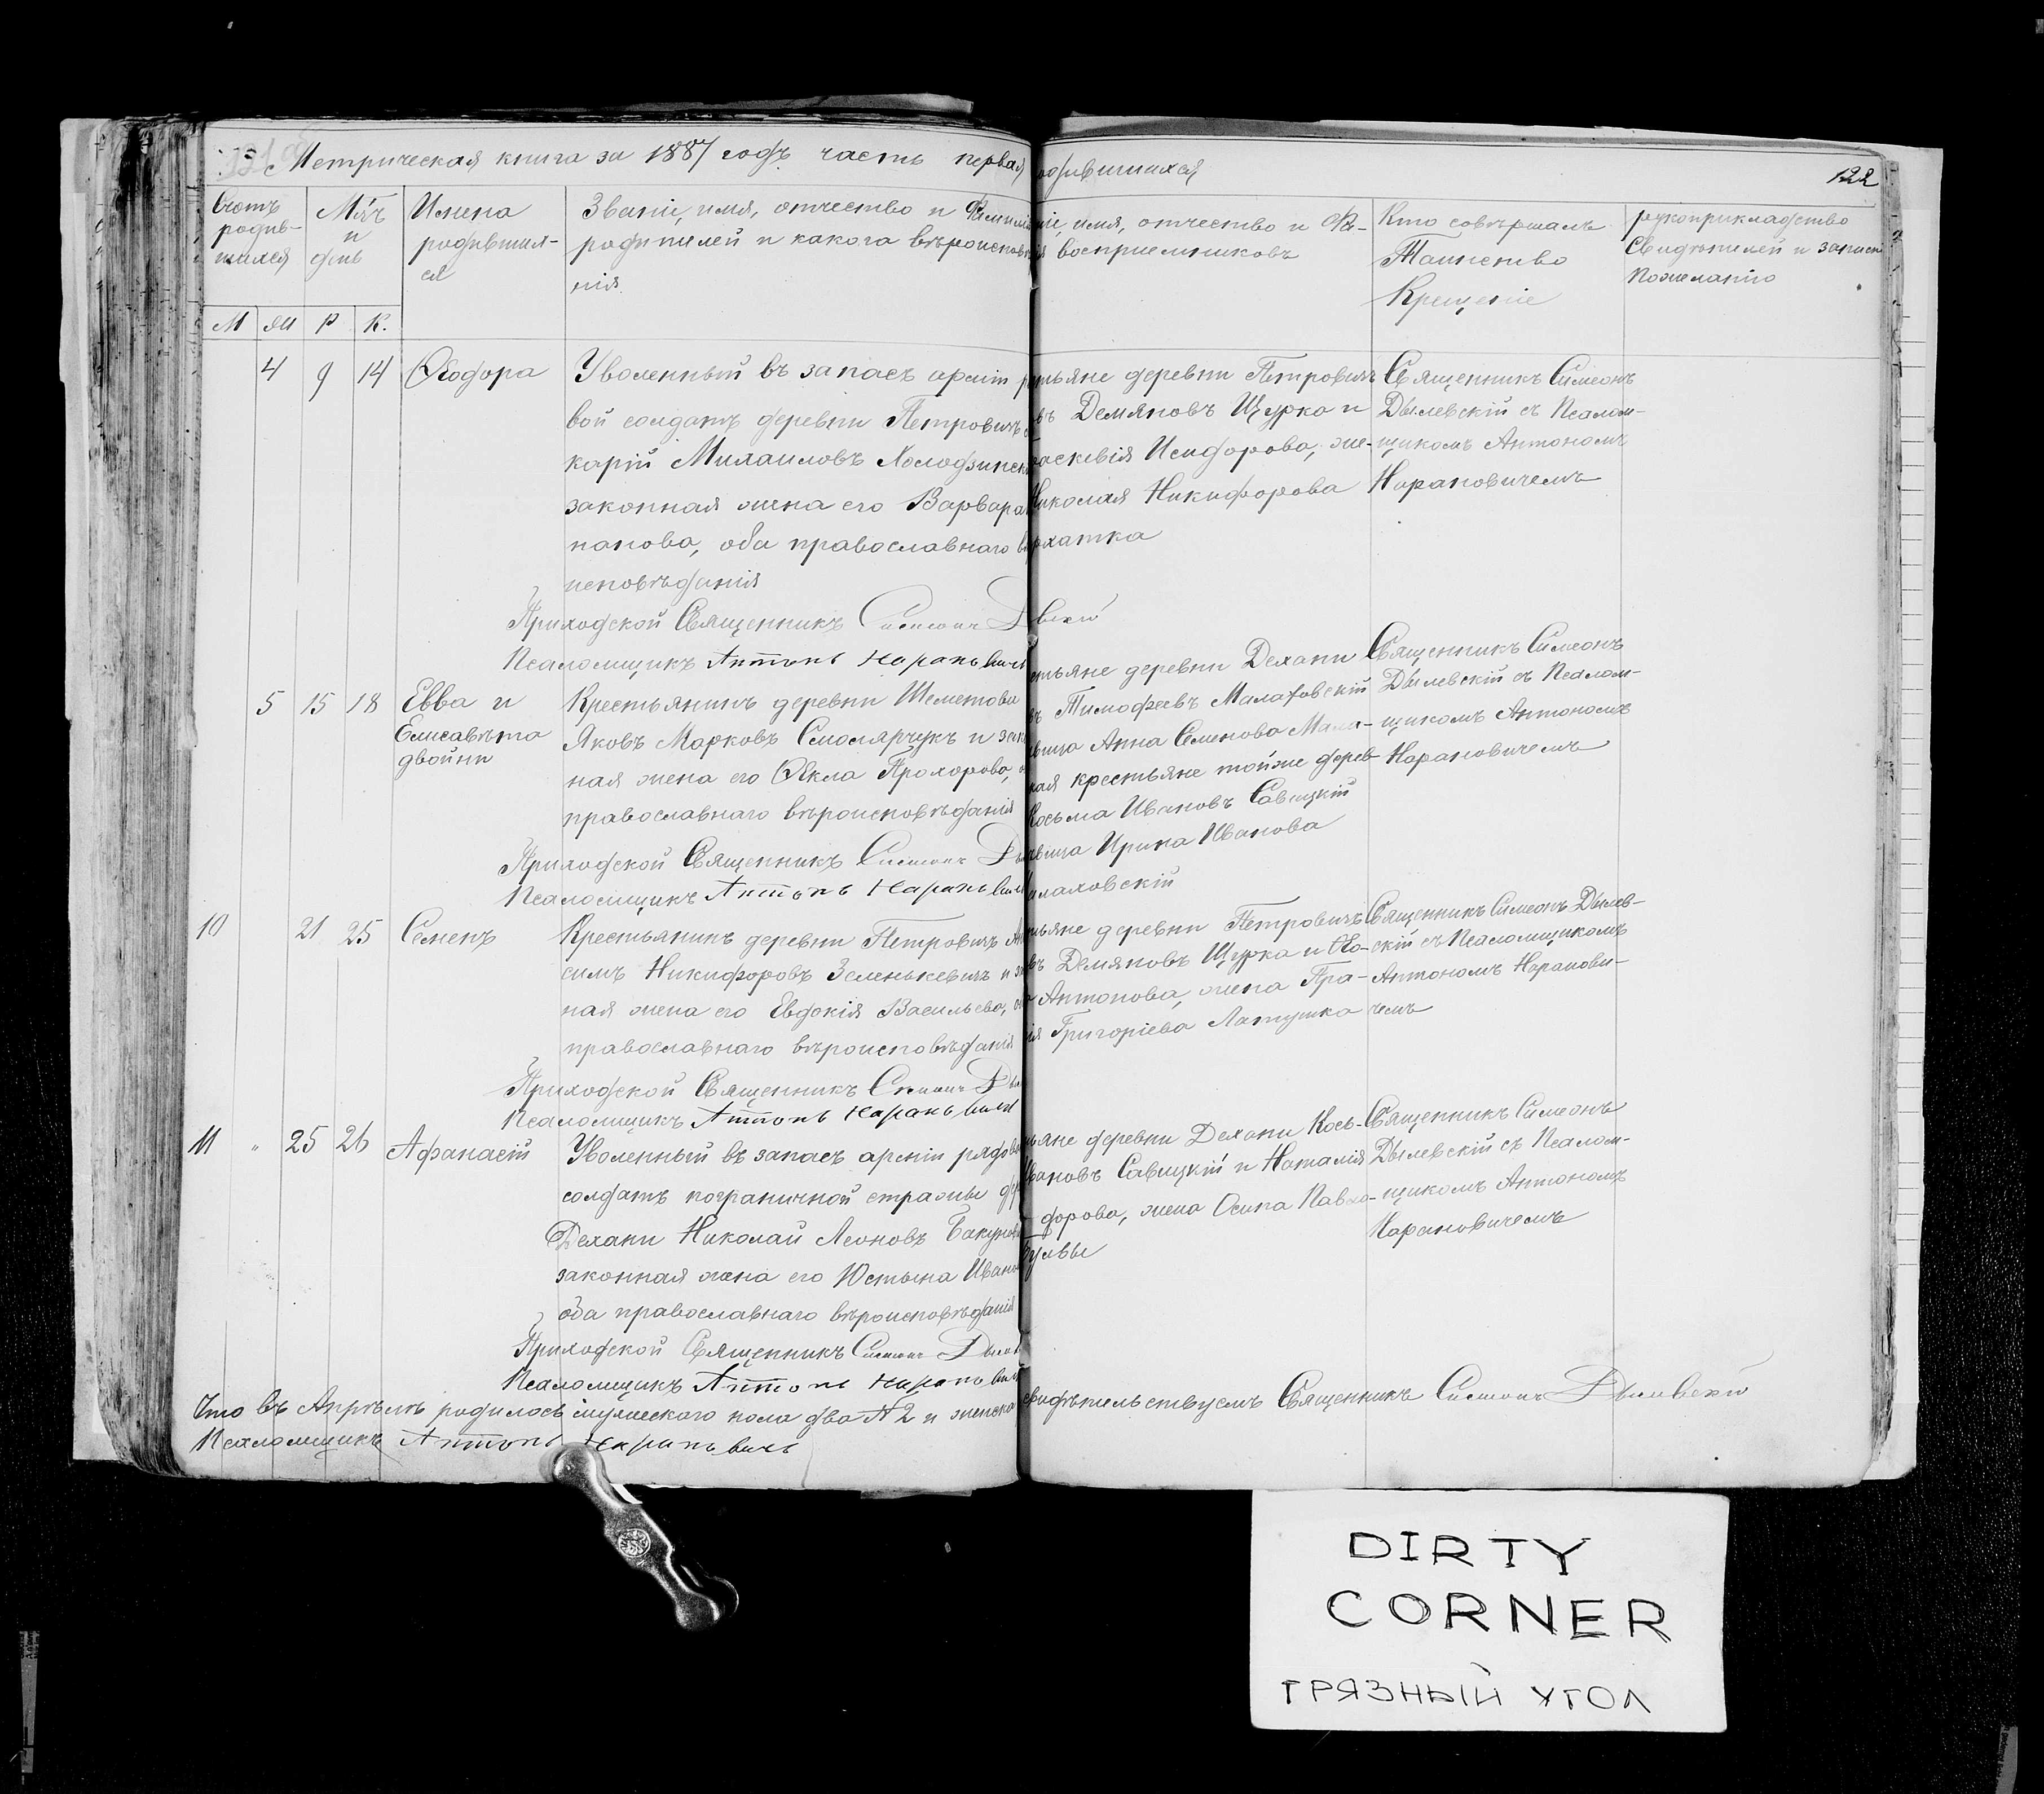 Метрическая книга за 1887 годъ часть первая
одившихся
122
Счотъ
родив-
шихся
М-цъ
и
день
Имена
родившил-
ся
Званіе, имя, отчество и Фимилі
родителей и какога вѣроисповѣ
нія.
М Ж Р К.
ніе, имя, отчество и Фа-
я воспріемниковъ
Кто совѣршалъ
Таинство
Крещеніе
рукоприкладство
Свидѣтелей и записи
Пожеланію
4 9 14 Ѳеодора
Уволенный въ запасъ арміи р
вой солдатъ деревни Петровичъ
карій Михаиловъ Холодинск
законная жена его Варвара
папова, оба православнаго в
исповѣданія
Приходской Священникъ Симеонъ Д
Псаломщикъ Антонъ Нарановичъ
тьяне деревни Петровичъ
въ Демяновъ Щурко и
раскевія Исидорова, же-
Николая Никифорова
рхатка
вскій
Священникъ Симеонъ
Дылевскій съ Псалом-
щикомъ Антономъ
Нарановичемъ
5 15 18 Евва и
Елисавѣта
двойни
Крестьянинъ деревни Шеметова
Яковъ Марковъ Смолярчукъ и зак
ная жена его Ѳекла Прохорова, о
православнаго вѣроисповѣданія
Приходской Священникъ Симеонъ Ды
Псаломщикъ Антонъ Нарановичъ
стьяне деревни Дехани
въ Тимофеевъ Малаховскій
вица Анна Семенова Мала-
кая крестьяне тойже дерев
Косьма Ивановъ Савицкій
вица Ирина Иванова
алаховскій
Священникъ Симеонъ
Дылевскій съ Псалом-
щикомъ Антономъ
Нарановичемъ
10 21 25 Семенъ
Крестьянинъ деревни Петровичъ
симъ Никифоровъ Зеленькевичъ и за
ная жена его Евдокія Васильева, о
православнаго вѣроисповѣданія
Приходской Священникъ Симеонъ Ды
Псаломщикъ Антонъ Нарановичъ
тьяне деревни Петровичъ
въ Демяновъ Щурка и Ѳео-
Антонова, жена Пра-
ія Григоріева Латушка
Священникъ Симеонъ Дылев-
скій съ Псаломщикомъ
Антономъ Наранови-
чемъ
11 " 25 26 Афанасій
Уволенный въ запасъ арміи рядово
солдатъ пограничной стражи де
Дехани Николай Леоновъ Бакунов
законная жена его Юстына Ивано
оба православнаго вѣроисповѣданія
Приходской Священникъ Симеонъ Дылев
Псаломщикъ Антонъ Нарановичъ
ьяне деревни Дехани Кось-
вановъ Савицкій и Наталія
дорова, жена Осипа Павло-
Бульвы
Священникъ Симеонъ
Дылевскій съ Псалом-
щикомъ Антономъ
Нарановичемъ
Что въ Апрѣлѣ родилось мужескаго пола два № 2 и женска
свидѣтельствуемъ Священникъ Симеонъ Дылевскій
Псаломщикъ Антонъ Нарановичъ
DIRTY
CORNER
ГРЯЗНЫЙ УГОЛ